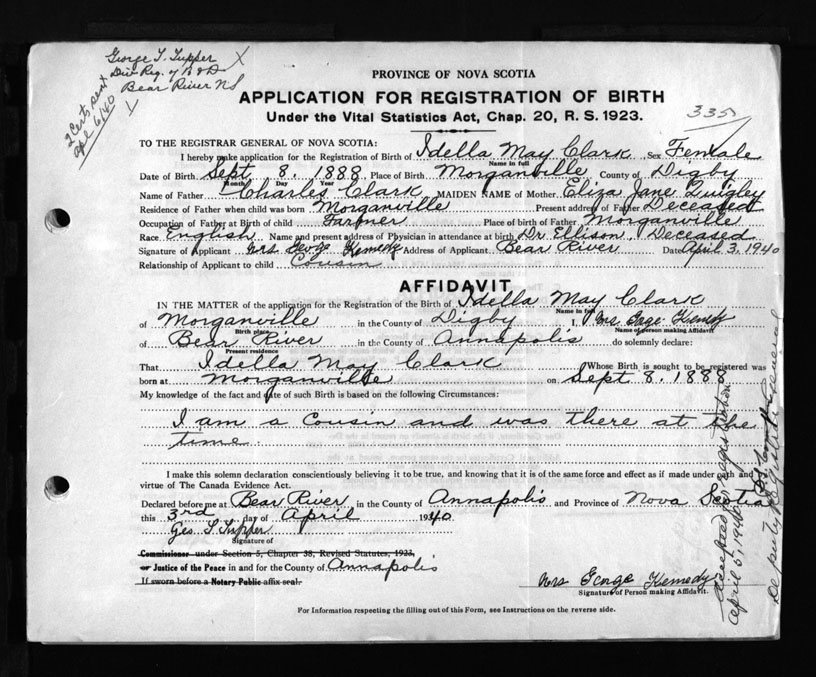 George T. Tupper X
Div Reg. of B & D
Bear River NS
2 Certs sent
Apl 6/40
PROVINCE OF NOVA SCOTIA
APPLICATION FOR REGISTRATION OF BIRTH
Under the Vital Statistics Act, Chap. 20, R. S. 1923.
335
TO THE REGISTRAR GENERAL OF NOVA SCOTIA:
I hereby make application for the Registration of Birth of Idella May Clark Sex Female
Name in full
Date of Birth Sept. 8. 1888 Place of Birth Morganville County of Digby
Month Day Year
Name of Father Charles Clark MAIDEN NAME of Mother Eliza Jane Quigley
Residence of Father when child was born Morganville Present address of Father Deceased
Occupation of Father at Birth of child Farmer Place of birth of Father Morganville
Race English Name and present address of Physician in attendance at birth Dr Ellison. Deceased
Signature of Applicant Mrs George Kennedy Address of Applicant Bear River Date April 3. 1940
Relationship of Applicant to child Cousin
AFFIDAVIT
IN THE MATTER of the application for the Registration of the Birth of Idella May Clark
Name in full
of Morganville in the County of Digby I, Mrs George Kennedy
Birth place Name of person making Affidavit
of Bear River in the County of Annapolis do solemnly declare:
Present residence
That Idella May Clark Whose Birth is sought to be registered was
born at Morganville on Sept 8. 1888
My knowledge of the fact and date of such Birth is based on the following Circumstances:
I am a Cousin and was there at the
time.
I make this solemn declaration conscientiously believing it to be true, and knowing that it is of the same force and effect as if made under oath and
virtue of The Canada Evidence Act.
Declared before me at Bear River in the County of Annapolis and Province of Nova Scotia
this 3rd day of April 1940
Geo. T. Tupper
Signature of
Commissioner under Section 5, Chapter 38, Revised Statutes, 1923,
or Justice of the Peace in and for the County of Annapolis
If sworn before a Notary Public affix seal.
Mrs George Kennedy
Signature of Person making Affidavit.
For Information respecting the filling out of this Form, see Instructions on the reverse side.
Accepted for registration
April 5, 1940
Deputy Registrar General